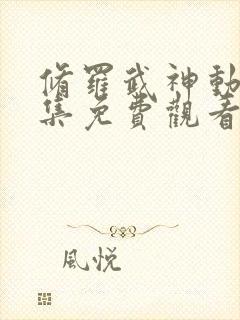 脩羅武神動
集免費觀看
風悅